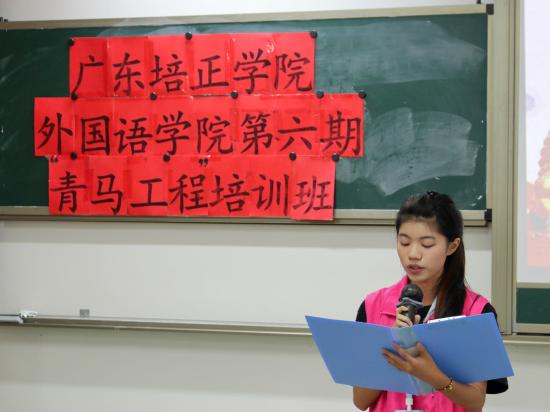 广东培正学院
外国语学院第六期
“青马工程”培训班